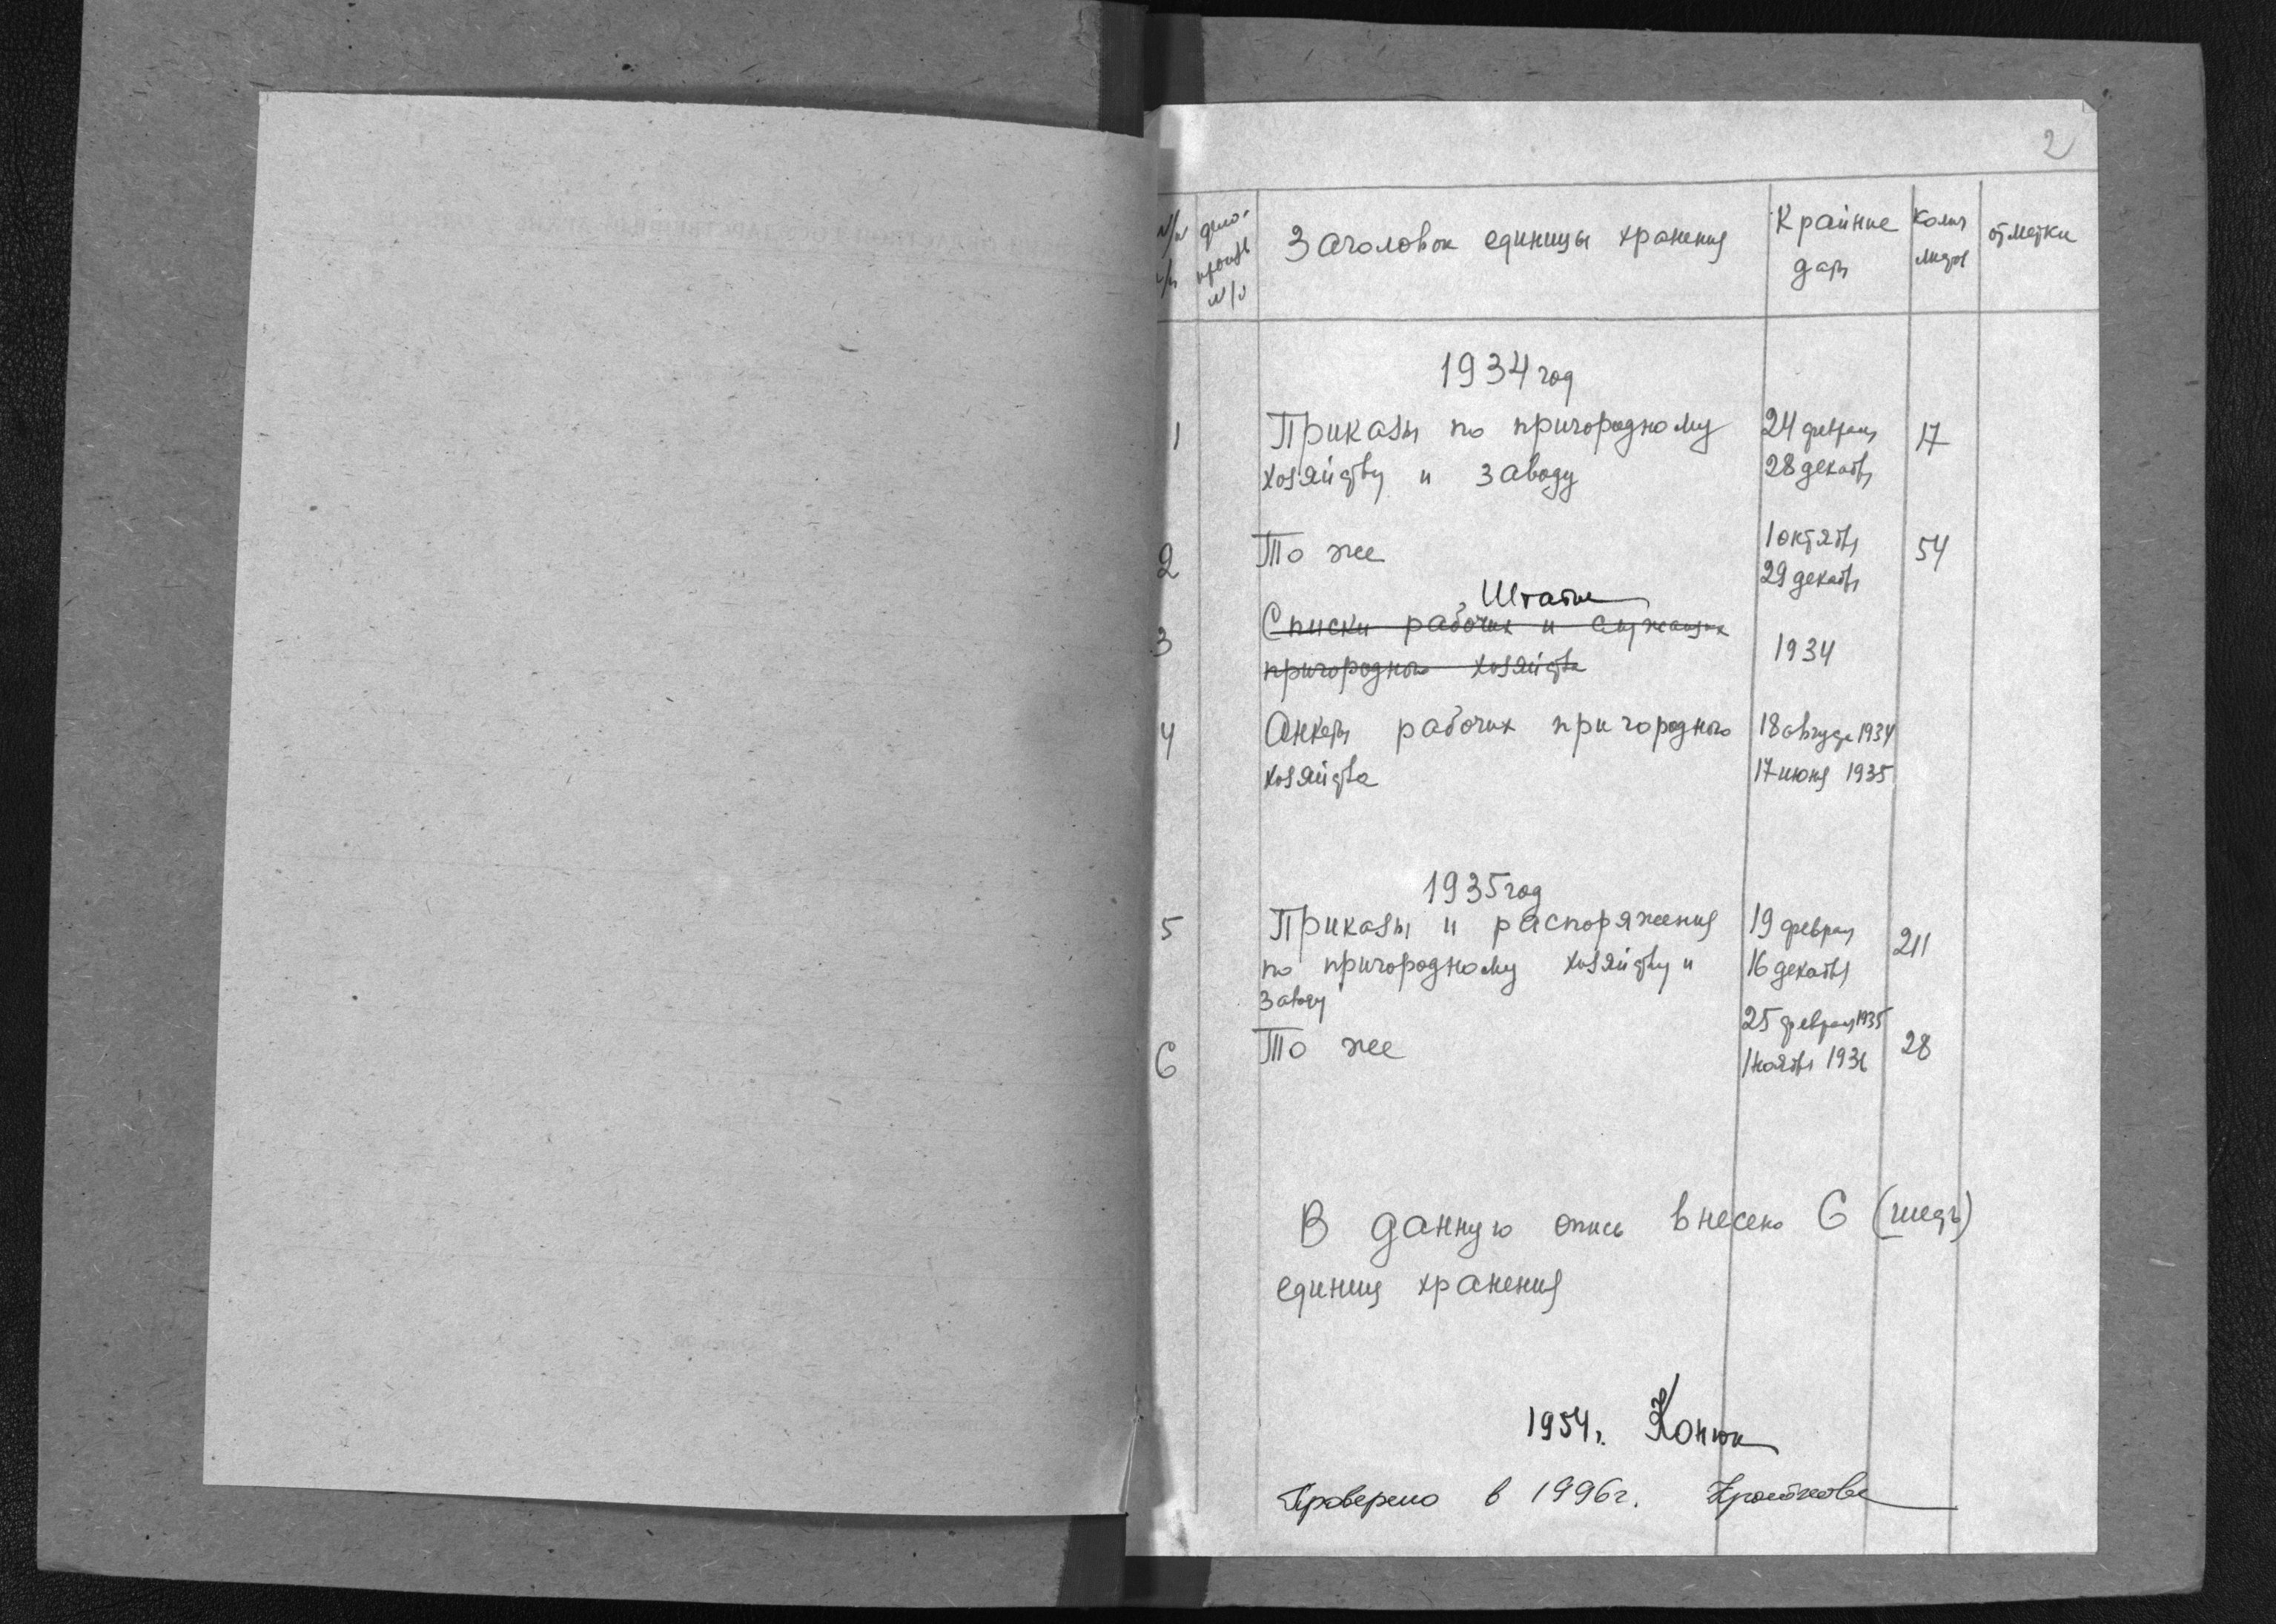 2
№/№ дело- Заголовок единицы хранения Крайние Колич отметки
п/п произв даты листов
№/№
1934 год
1 Приказы по пригородному 24 февраля 17
хозяйству и заводу 28 декабря
2 То же 1 октября 54
29 декабря
Штаты
3 Списки рабочих и служащих 1934
пригородного хозяйства
4 Анкеты рабочих пригородного 18 августа 1934
хозяйства 17 июня 1935
1935 год
5 Приказы и распоряжения 19 февраля 211
по пригородному хозяйству и 16 декабря
заводу
25 февраля 1935
6 То же 28
1 ноября 1936
В данную опись внесено 6 (шесть)
единиц хранения
1954 г.
Проверено в 1996 г.